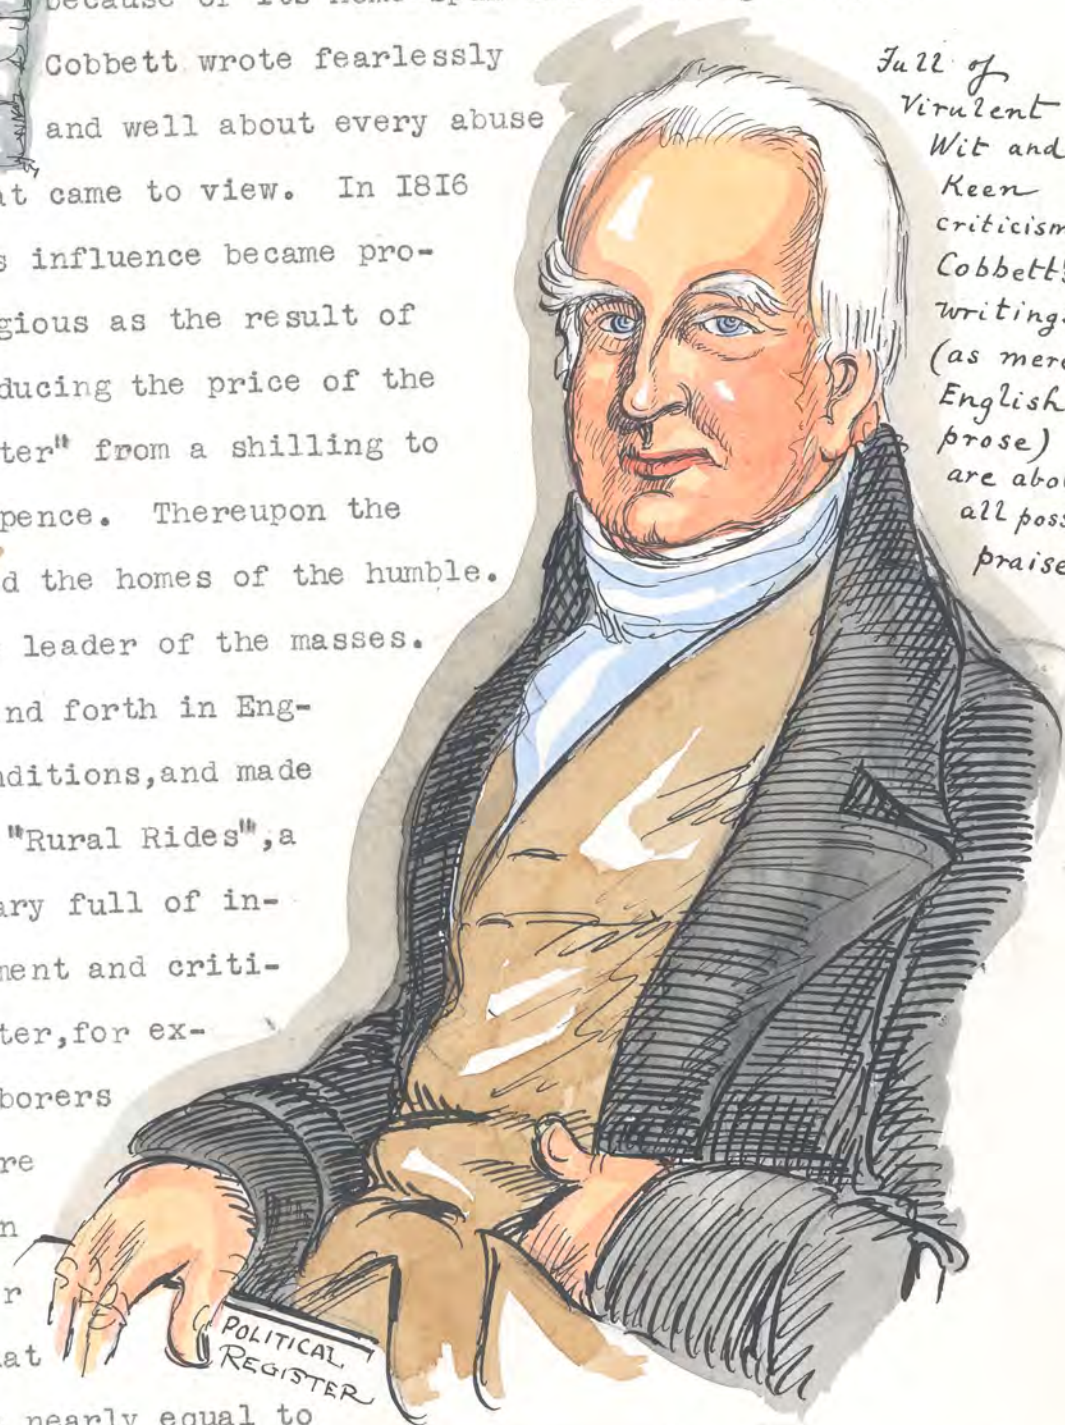 because of its home-spun
Cobbett wrote fearlessly
and well about every abuse
at came to view. In I8I6
s influence became pro-
gious as the result of
ducing the price of the
ter" from a shilling to
pence. Thereupon the
d the homes of the humble.
leader of the masses.
nd forth in Eng-
nditions,and made
"Rural Rides",a
ary full of in-
ment and criti-
ter,for ex-
borers
re
n
r
at
nearly equal to
Full of
Virulent
Wit and
Keen
criticism
Cobbett's
writings
(as mere
English
prose)
are abo
all poss
praise
POLITICAL
REGISTER